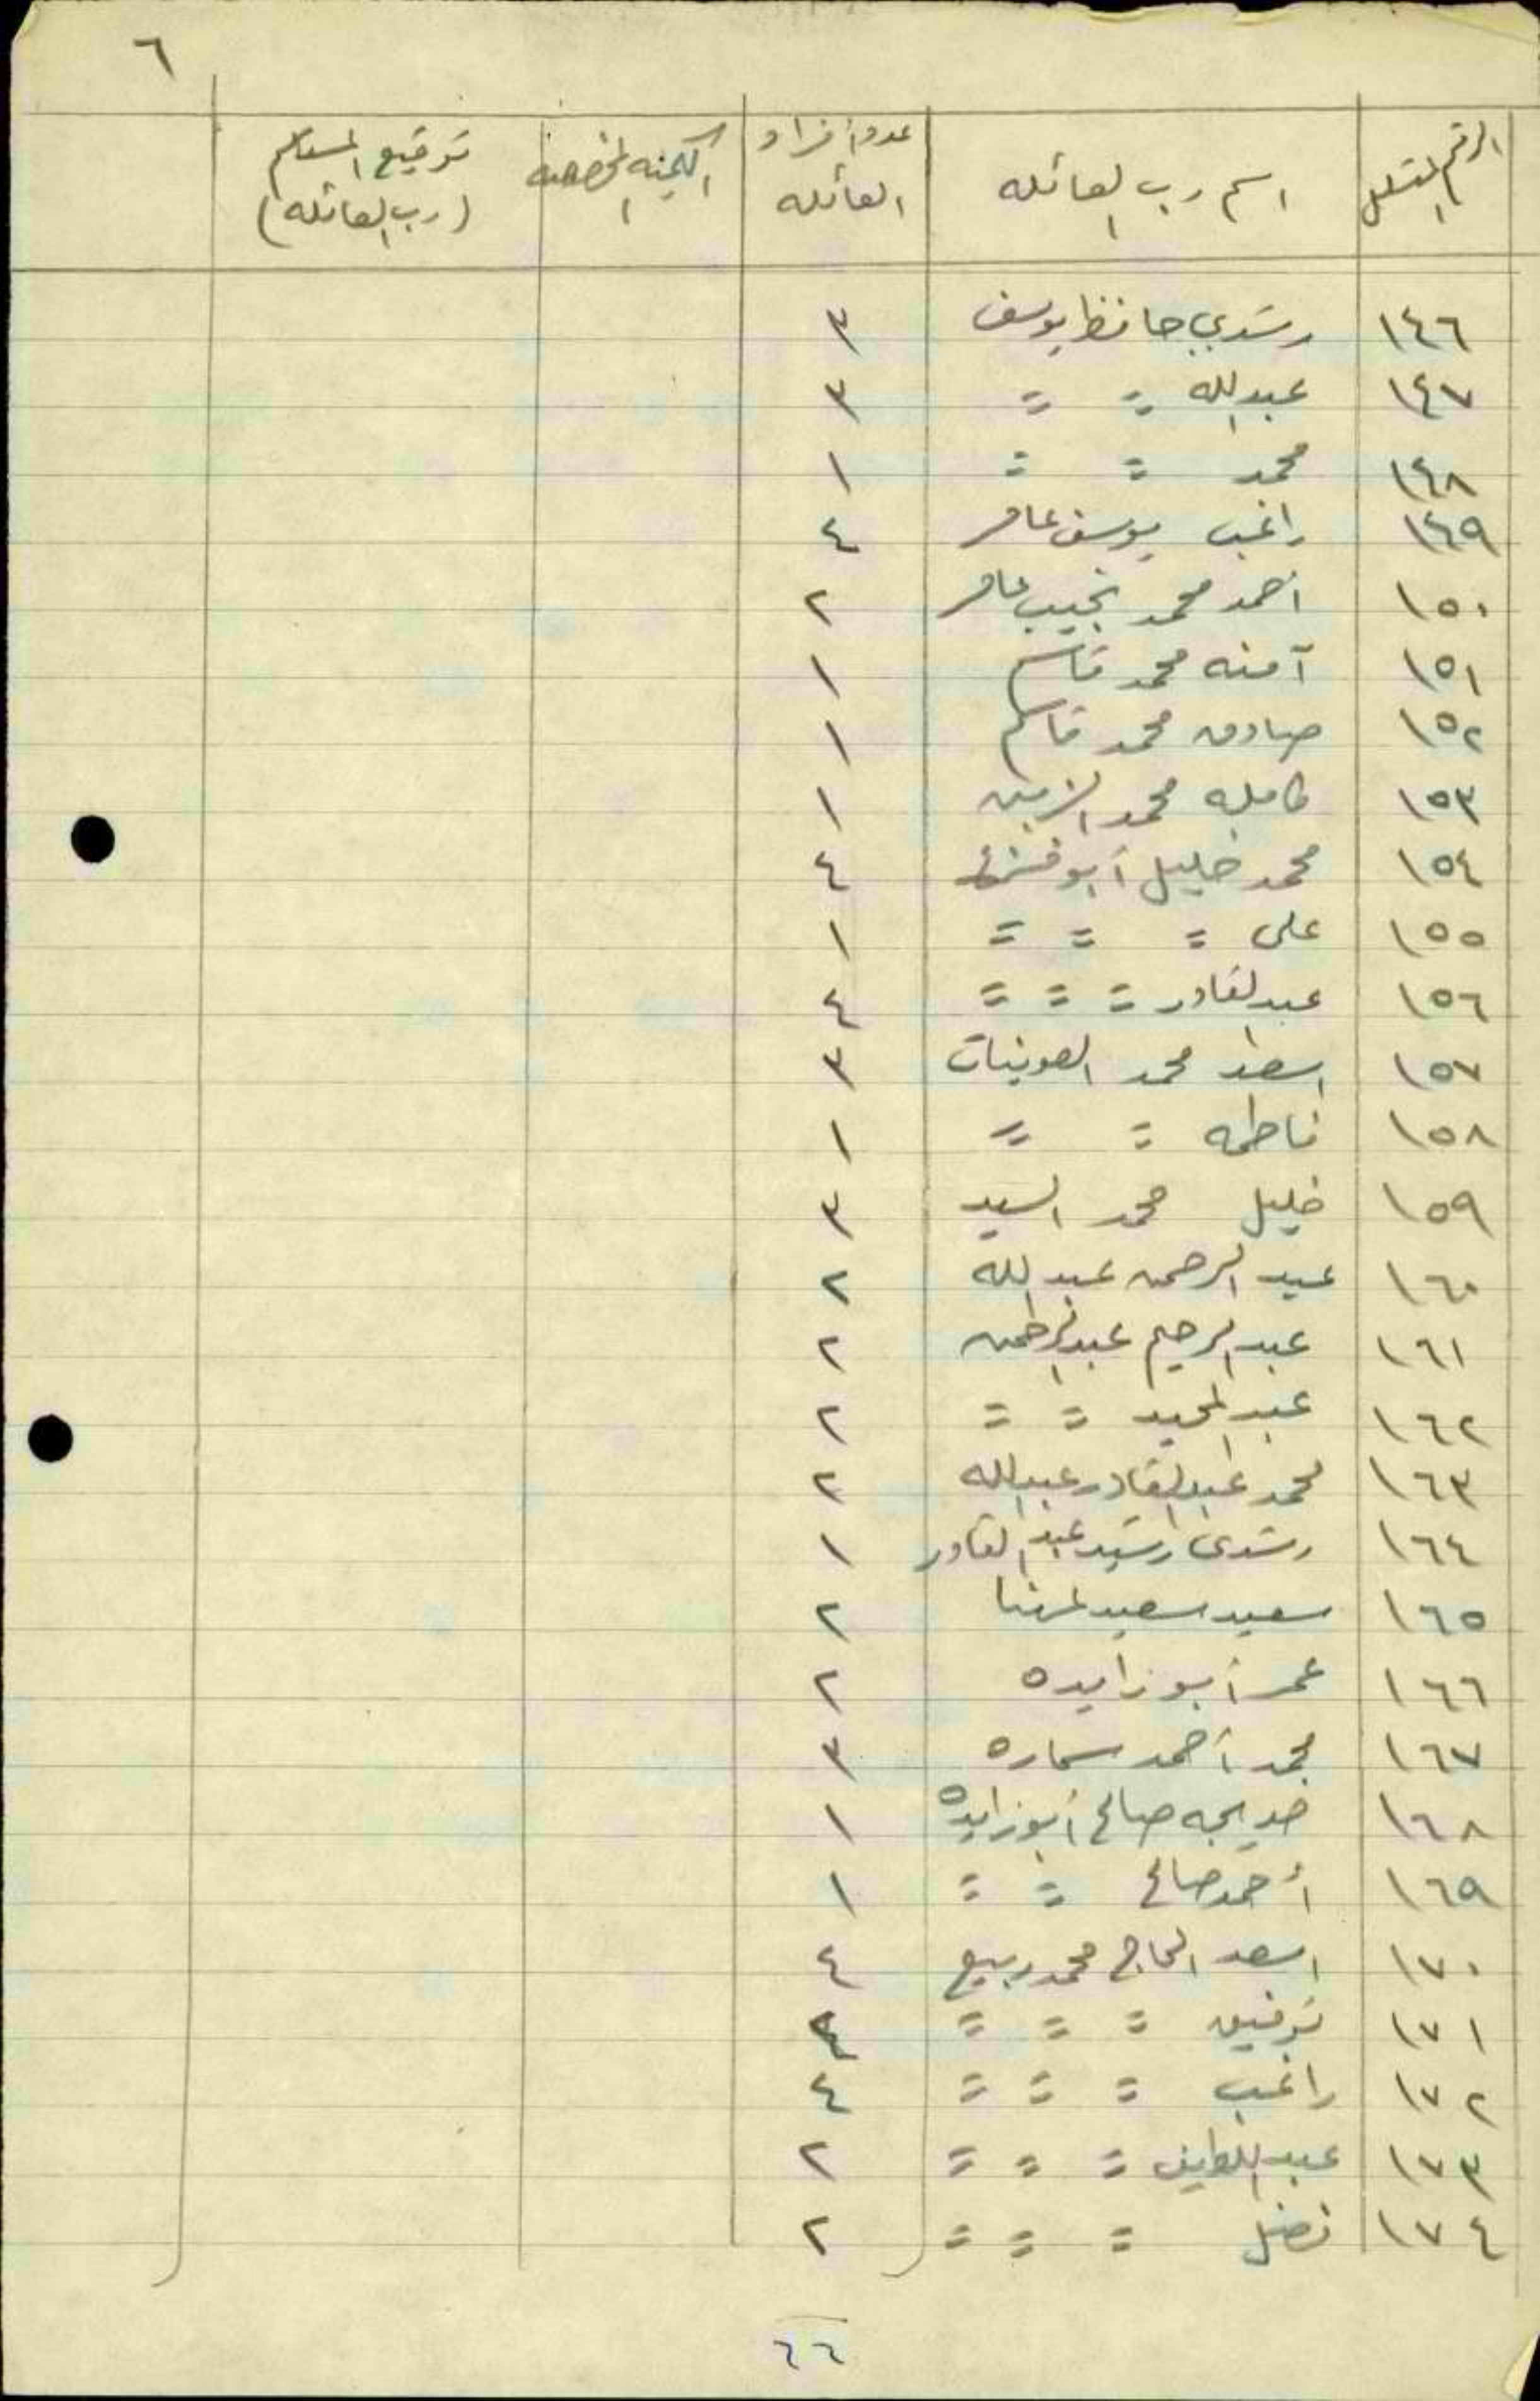 ٦
الرقم المتسلسل | اسم رب العائله | عدد أفراد العائله | الكميه المخصصه | توقيع المستلم (رب العائله)
١٤٦ رشدي حافظ يوسف ٣
١٤٧ عبدالله = = ٣
١٤٨ محمد = = ١
١٤٩ راغب يوسف عامر ٤
١٥٠ أحمد محمد نجيب عامر ٢
١٥١ آمنه محمد قاسم ١
١٥٢ صادق محمد قاسم ١
١٥٣ كامله محمد الزبن ١
١٥٤ محمد خليل أبو ٤
١٥٥ على = = = ١
١٥٦ عبدالقادر = = = ٤
١٥٧ اسعد محمد الصوينات ٣
١٥٨ فاطمه = = ١
١٥٩ خليل محمد السيد ٣
١٦٠ عبد الرحمن عبدالله ٢
١٦١ عبد الرحيم عبدالرحمن ٢
١٦٢ عبد المجيد = = ٢
١٦٣ محمد عبدالقادر عبدالله ٢
١٦٤ رشدى رشيد عبد القادر ١
١٦٥ سعيد سعيد مهنا ٢
١٦٦ عمر أبو زايده ٢
١٦٧ محمد أحمد سماره ٣
١٦٨ خديجه صالح أبو زايده ١
١٦٩ أحمد صالح = = ١
١٧٠ اسعد الحاج محمد ربيع ٤
١٧١ توفيق = = = ٤
١٧٢ راغب = = = ٤
١٧٣ عبد اللطيف = = = ٢
١٧٤ فضل = = = ٢
٦٦